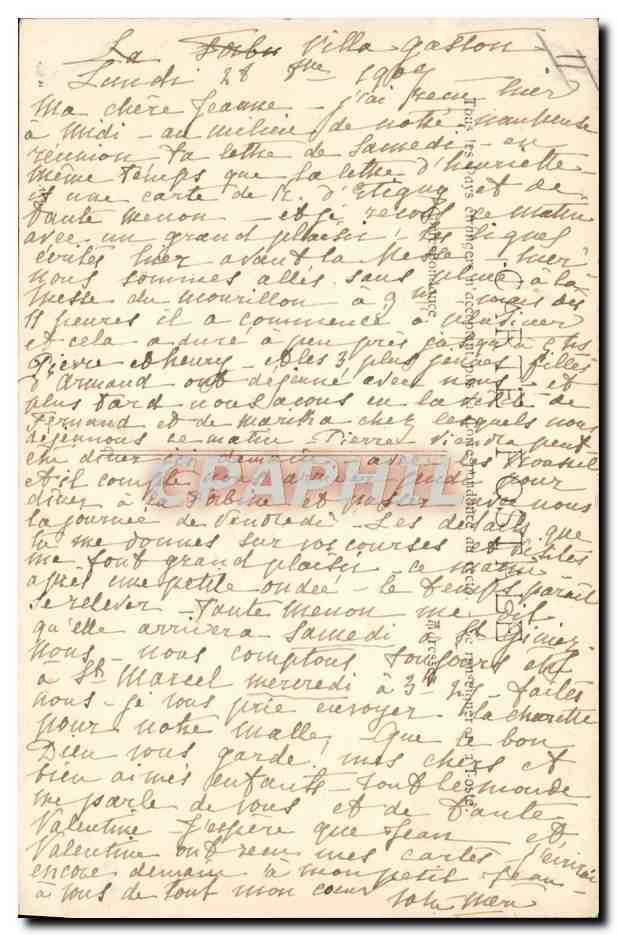 La villa Gaston
Lundi 28 1909
Ma chère Jeanne - j'ai reçu hier
à midi - au milieu de notre
réunion ta lettre de Samedi - en
même temps que la lettre d'henriette -
et une carte de d'Etigny et de
tante menon - et je reçois ce matin
avec un grand plaisir les lignes
écrites hier avant la Messe - hier
nous sommes allés sans pluie à la
messe du mourillon à 9 h - mais dès
11 heures il a commencé à
et cela a duré à peu près jusqu'à 5 hs
Pierre et henry - et les 3 plus jeunes filles
d'Armand ont déjeuné avec nous - et
plus tard nous avons eu la visite de
Fernand et de Martha chez lesquels nous
déjeunons ce matin Pierre viendra peut
être dîner ici demain avec les
et il compte nous arriver jeudi pour
dîner à la et passer avec nous
la journée de Vendredi - Les détails que
tu me donnes sur vos courses et visites
me font grand plaisir - ce matin
après une petite ondée - le temps paraît
se relever - tante menon me dit
qu'elle arrivera samedi à St
nous - nous comptons toujours être
à St Marcel mercredi à 3h 25 - faites
nous - je vous prie envoyer la charette
pour notre malle - Que le bon
Dieu vous garde mes chers et
bien aimés enfants - tout le monde
me parle de vous et de tante
Valentine - J'espère que Jean et
Valentine ont reçu mes cartes j'écrirai
encore demain à mon petit Jean -
à vous de tout mon coeur
votre Mère
CARTE POSTALE
Tous les Pays étrangers n'acceptent pas la correspondance au recto. Se renseigner à la Poste
Correspondance
Adresse
CPAPHIL